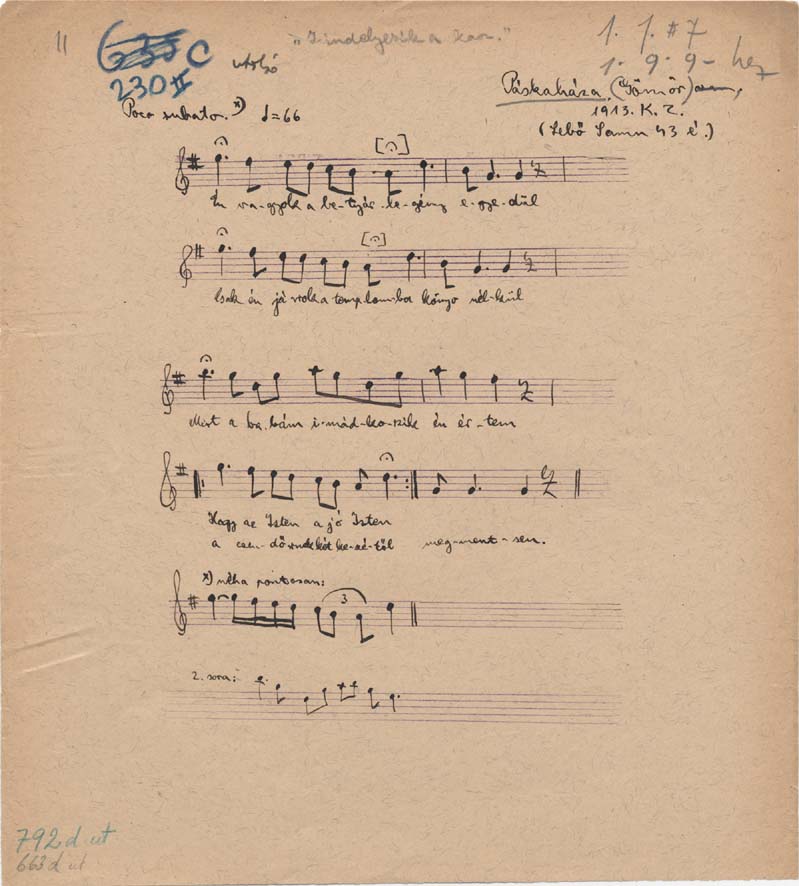 11
C
230 II
utolsó
1. 1. #7
1. 9. 9- hez
Páskaháza, (Gömör)
1913. K. Z.
(Lebő Samu 43 é.)
Poco rubato. x) ♩=66
Én va-gyok a be-tyár le-gény e-gye-dül
Csak én já rtok a temp-lom-ba könyv nél-kül
Mért a ba bám i-mád-ko-zik én ér-tem
Hogy az Isten a jó Isten
a csen-dőröknek két ke-zé-től meg-ment-sen.
x) néha pontosan:
3
2. sora:
792 d ut
663 d ut